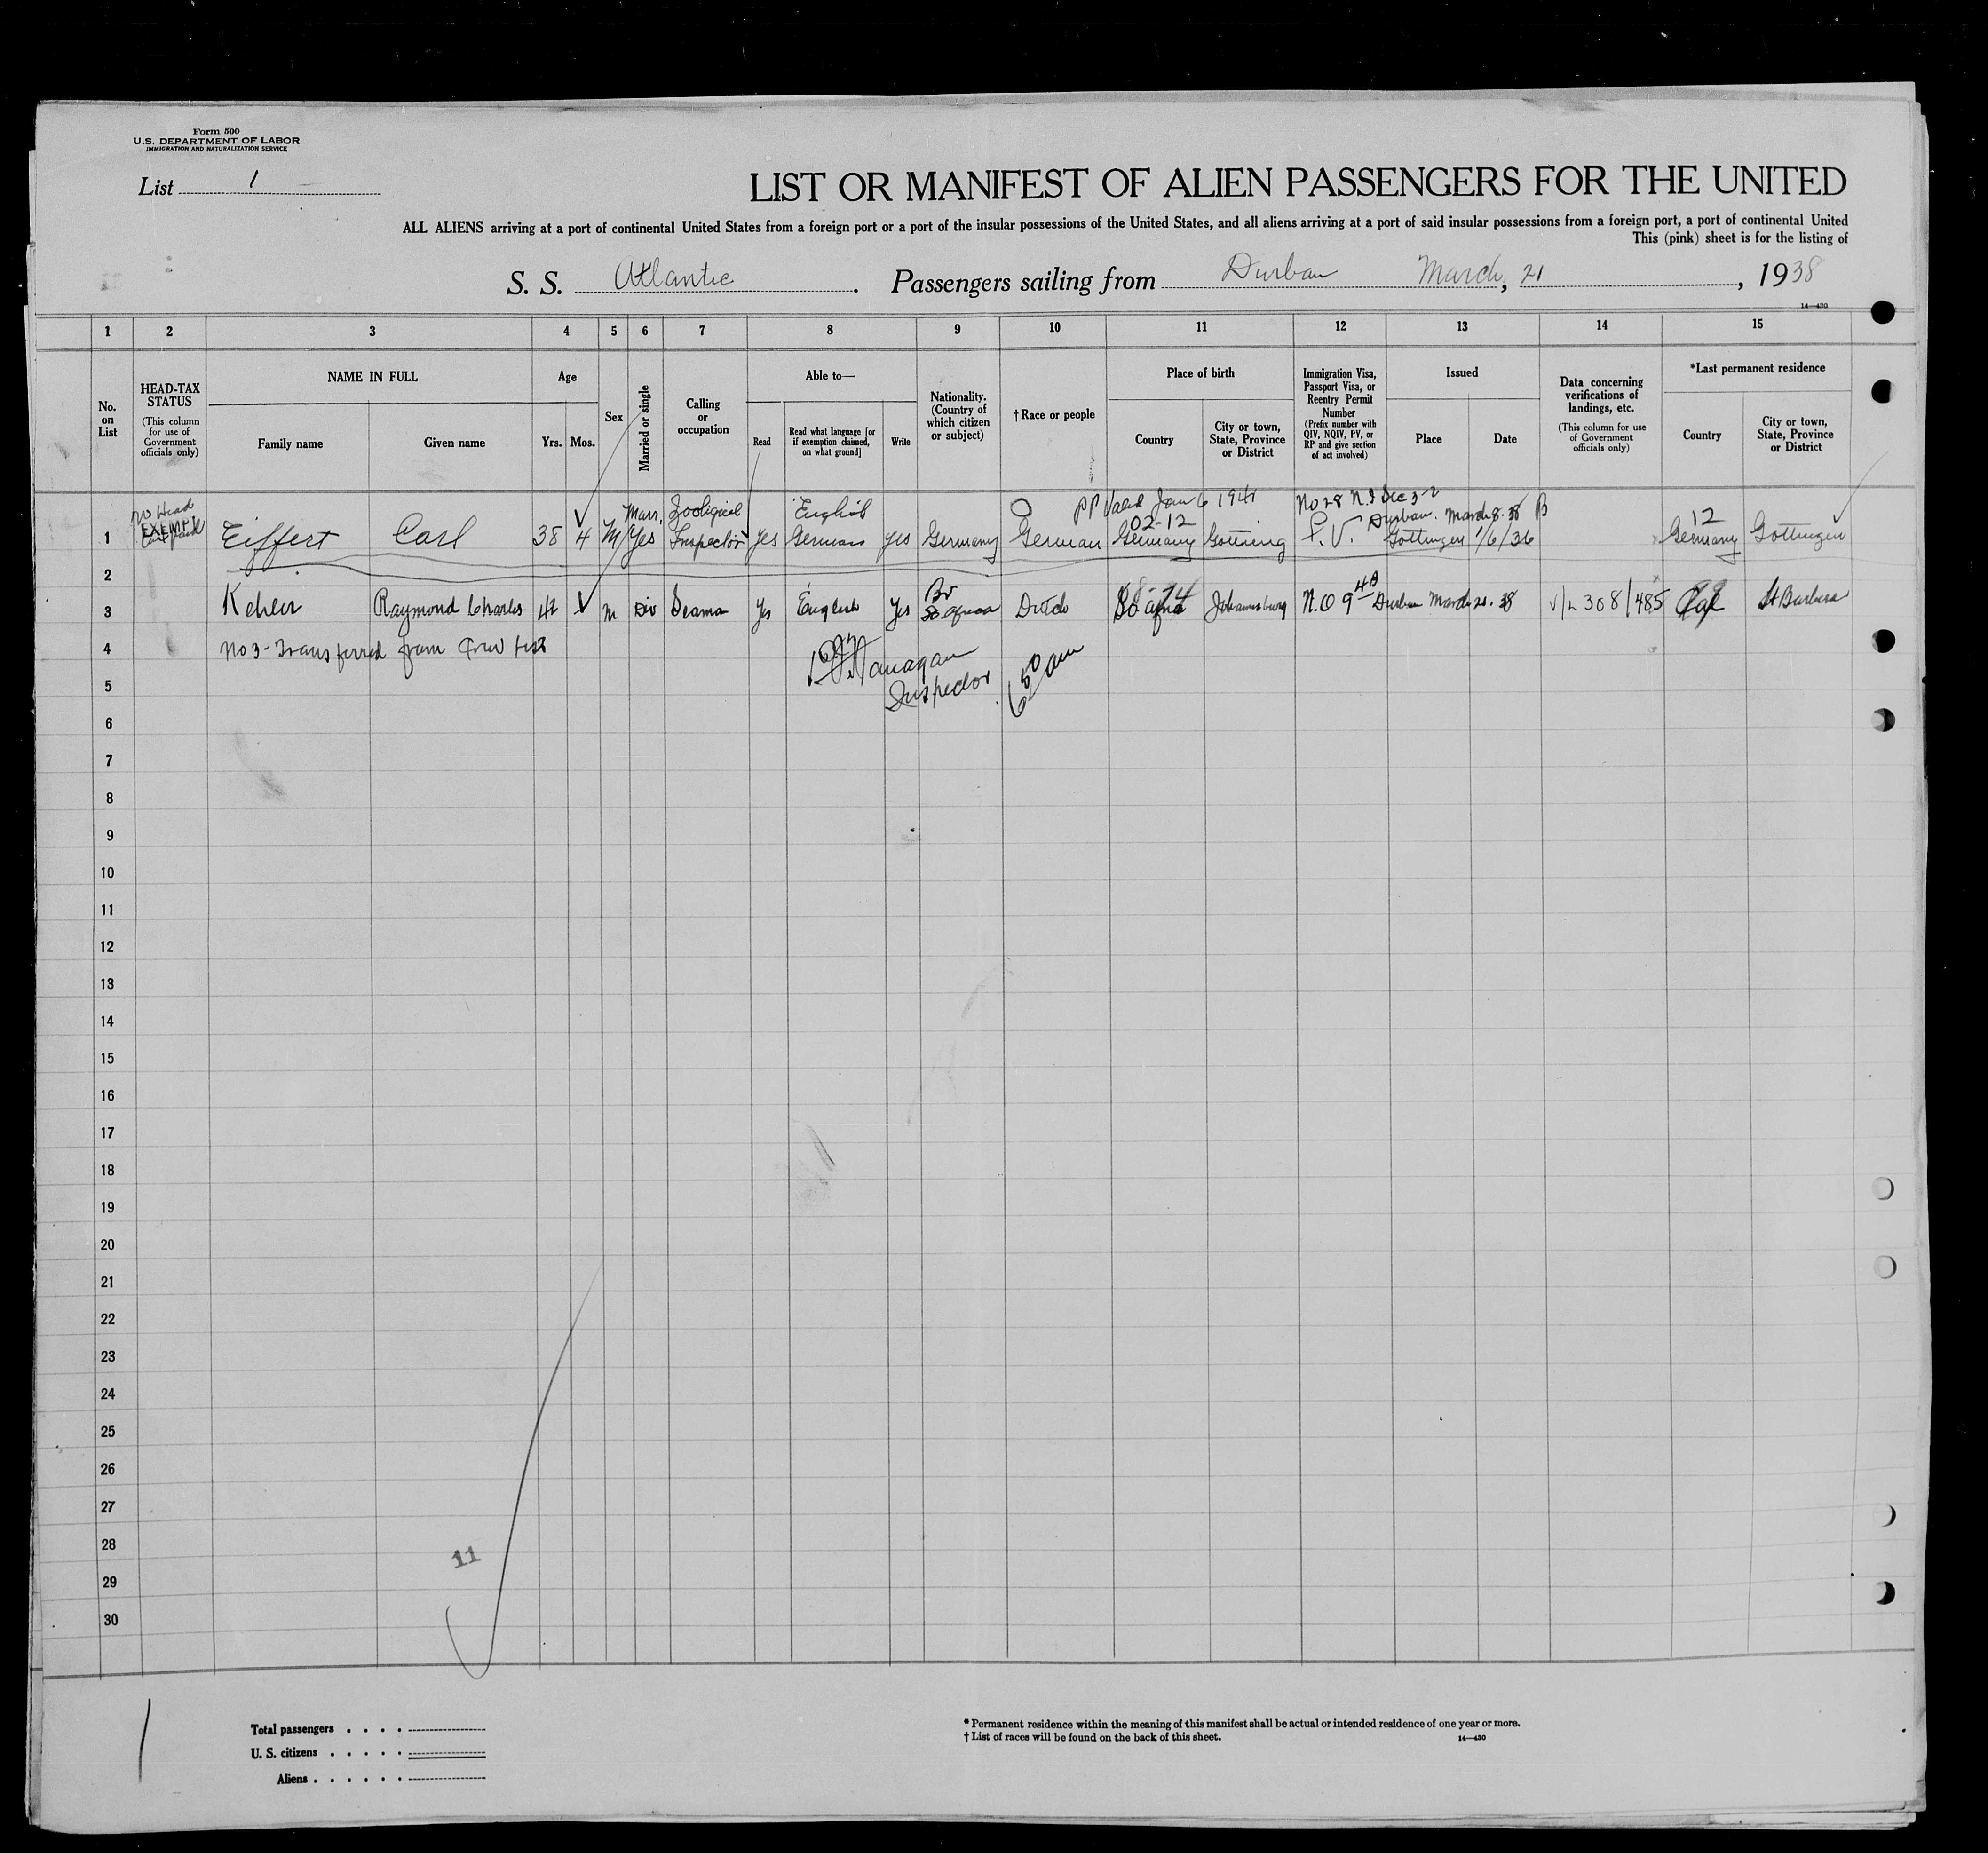 Form 500
U.S. DEPARTMENT OF LABOR
IMMIGRATION AND NATURALIZATION SERVICE
List 1
LIST OR MANIFEST OF ALIEN PASSENGERS FOR THE UNITED
ALL ALIENS arriving at a port of continental United States from a foreign port or a port of the insular possessions of the United States, and all aliens arriving at a port of said insular possessions from a foreign port, a port of continental United
This (pink) sheet is for the listing of
S. S. Atlantic . Passengers sailing from Durban March, 21 , 1938
14—430
1 2 3 4 5 6 7 8 9 10 11 12 13 14 15
No. on List
HEAD-TAX STATUS (This column for use of Government officials only)
NAME IN FULL
Family name
Given name
Age
Yrs.
Mos.
Sex
Married or single
Calling or occupation
Able to—
Read
Read what language [or if exemption claimed, on what ground]
Write
Nationality. (Country of which citizen or subject)
†Race or people
Place of birth
Country
City or town, State, Province or District
Immigration Visa, Passport Visa, or Reentry Permit Number (Prefix number with QIV, NQIV, PV, or RP and give section of act involved)
Issued
Place
Date
Data concerning verifications of landings, etc. (This column for use of Government officials only)
*Last permanent residence
Country
City or town, State, Province or District
No Head Marr. Zoological English PP Valid Jan 6 1941 No 28 N.I Sec 3-2
EXEMPT 02-12 Durban. March 8. 38 B 12
1 Eiffert Carl 38 4 M Yes Inspector yes German yes Germany German Germany Gottning P.V. Gottingen 1/6/36 Germany Gottingen
2
3 Raymond Charles 42 M Div Seaman Yes English Yes Br So africa Dutch So africa Johannesburg N.Q 9 4B Durban March 21. 38 V/L 308/485 Cal St Barbara
4 No 3 - Transferred from Crew List
Inspector 6 50 am
5
6
7
8
9
10
11
12
13
14
15
16
17
18
19
20
21
22
23
24
25
26
27
28
29
30
11
Total passengers . . . .
U. S. citizens . . . . .
Aliens . . . . . .
* Permanent residence within the meaning of this manifest shall be actual or intended residence of one year or more.
† List of races will be found on the back of this sheet.
14—430